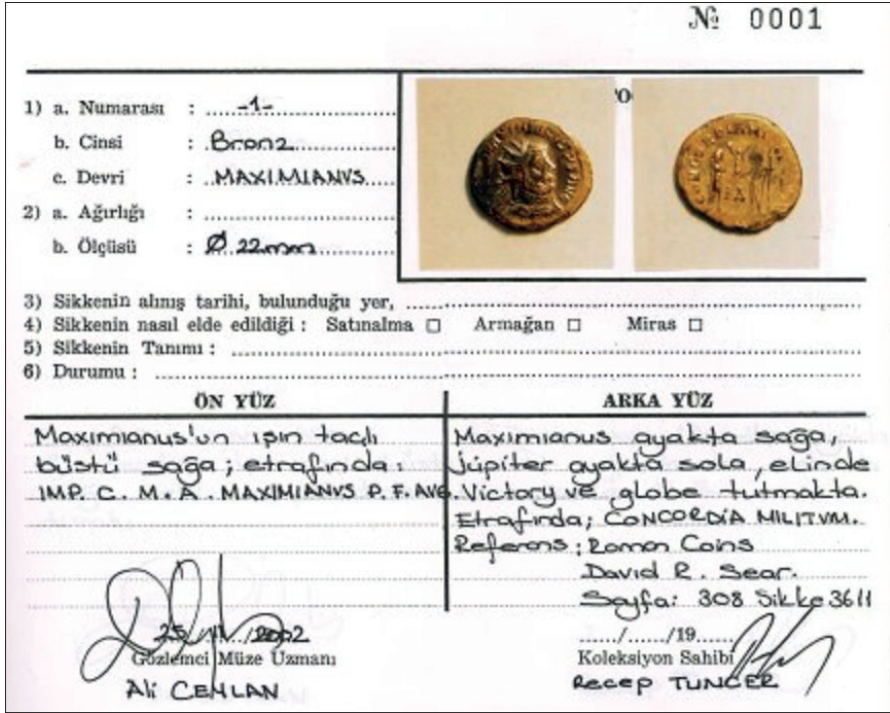 № 0001
1) a. Numarası : -1-
b. Cinsi : Bronz
c. Devri : MAXIMIANVS
2) a. Ağırlığı :
b. Ölçüsü : Ø 22mm
3) Sikkenin alınış tarihi, bulunduğu yer,
4) Sikkenin nasıl elde edildiği : Satınalma □ Armağan □ Miras □
5) Sikkenin Tanımı :
6) Durumu :
ÖN YÜZ
Maximianus'un ışın taçlı
büstü sağa; etrafında:
IMP. C. M. A. MAXIMIANVS P. F. AVG.
25/11/2002
Gözlemci Müze Uzmanı
Ali CEYLAN
ARKA YÜZ
Maximianus ayakta sağa,
Jüpiter ayakta sola, elinde
Victory ve globe tutmakta.
Etrafında; CONCORDİA MILITVM.
Referans: Roman Coins
David R. Sear.
Sayfa: 308 Sikke 3611
...../...../19.....
Koleksiyon Sahibi
Recep TUNCER